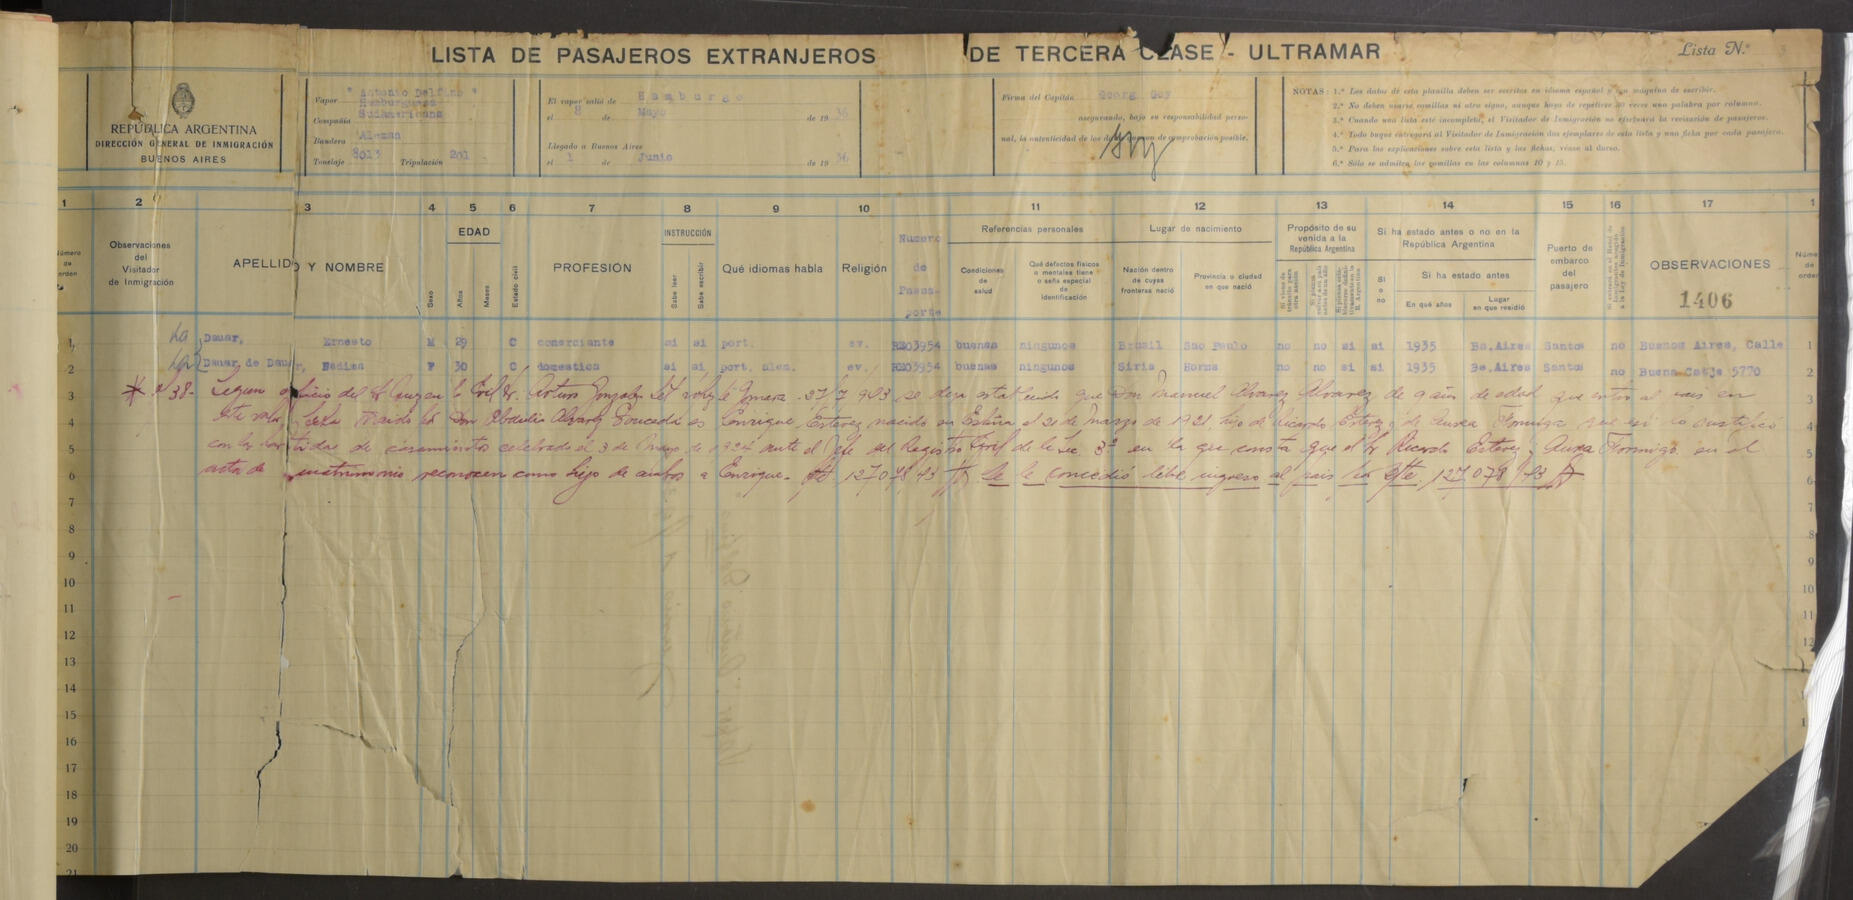 LISTA DE PASAJEROS EXTRANJEROS DE TERCERA CLASE - ULTRAMAR
Lista N.º
REPÚBLICA ARGENTINA
DIRECCIÓN GENERAL DE INMIGRACIÓN
BUENOS AIRES
Vapor "Antonio Delfino"
Compañía Hamburguesa Sudamericana
Bandera Alemana
Tonelaje 8013 Tripulación 201
El vapor salió de Hamburgo
el 8 de Mayo de 1936
Llegado a Buenos Aires
el 1 de Junio de 1936
Firma del Capitán Georg
asegurando, bajo su responsabilidad perso-
nal, la autenticidad de los de comprobación posible.
NOTAS: 1.ª Los datos de esta planilla deben ser escritos en idioma español y en máquina de escribir.
2.ª No deben usarse comillas ni otro signo, aunque haya de repetirse 30 veces una palabra por columna.
3.ª Cuando una lista esté incompleta, el Visitador de Inmigración no efectuará la revisación de pasajeros.
4.ª Todo buque entregará al Visitador de Inmigración dos ejemplares de esta lista y una ficha por cada pasajero.
5.ª Para las explicaciones sobre esta lista y las fichas, véase al dorso.
6.ª Sólo se admiten las comillas en las columnas 10 y 15.
1 2 3 4 5 6 7 8 9 10 11 12 13 14 15 16 17 1
Número de orden
Observaciones del Visitador de Inmigración
APELLIDO Y NOMBRE
Sexo
EDAD
Años
Meses
Estado civil
PROFESIÓN
INSTRUCCIÓN
Sabe leer
Sabe escribir
Qué idiomas habla
Religión
Numero de Pasa-porte
Referencias personales
Condiciones de salud
Qué defectos físicos o mentales tiene o seña especial de identificación
Lugar de nacimiento
Nación dentro de cuyas fronteras nació
Provincia o ciudad en que nació
Propósito de su venida a la República Argentina
Si ha estado antes o no en la República Argentina
Si o no
Si ha estado antes
En qué años
Lugar en que residió
Puerto de embarco del pasajero
OBSERVACIONES
1406
Número de orden
1 Dauar, Ernesto M 29 C comerciante si si port. ev. buenas ningunos Brasil Sao Paulo no no si si 1935 Bs.Aires Santos no Buenos Aires, Calle 1
2 Dauar, de Dauar, F 30 C domestica si si port. alem. ev. buenas ningunos Siria Homs no no si si 1935 Bs.Aires Santos no 5770 2
3 * Nº 38- Según oficio del Civil Dr. Arturo se deja establecido que Don Manuel Alvarez Alvarez de 9 años de edad que entró al país en 3
4 este vapor Don Alvarez es Enrique Estevez nacido en España el 21 de Marzo de 1921, hijo de Ricardo Estevez y de Aurea Formigo que así lo justificó 4
5 con la partida de casamiento celebrado el 3 de de 1924 ante el Jefe del Registro Civil de la Sec. 3ª en la que consta que el Sr Ricardo Estevez y Aurea Formigo en el 5
6 acta de matrimonio reconocen como hijo de ambos a Enrique. 127078/43 Se le concedió libre ingreso al país 127.078/43 6
7 7
8 8
9 9
10 10
11 11
12 12
13
14
15
16
17
18
19
20
21